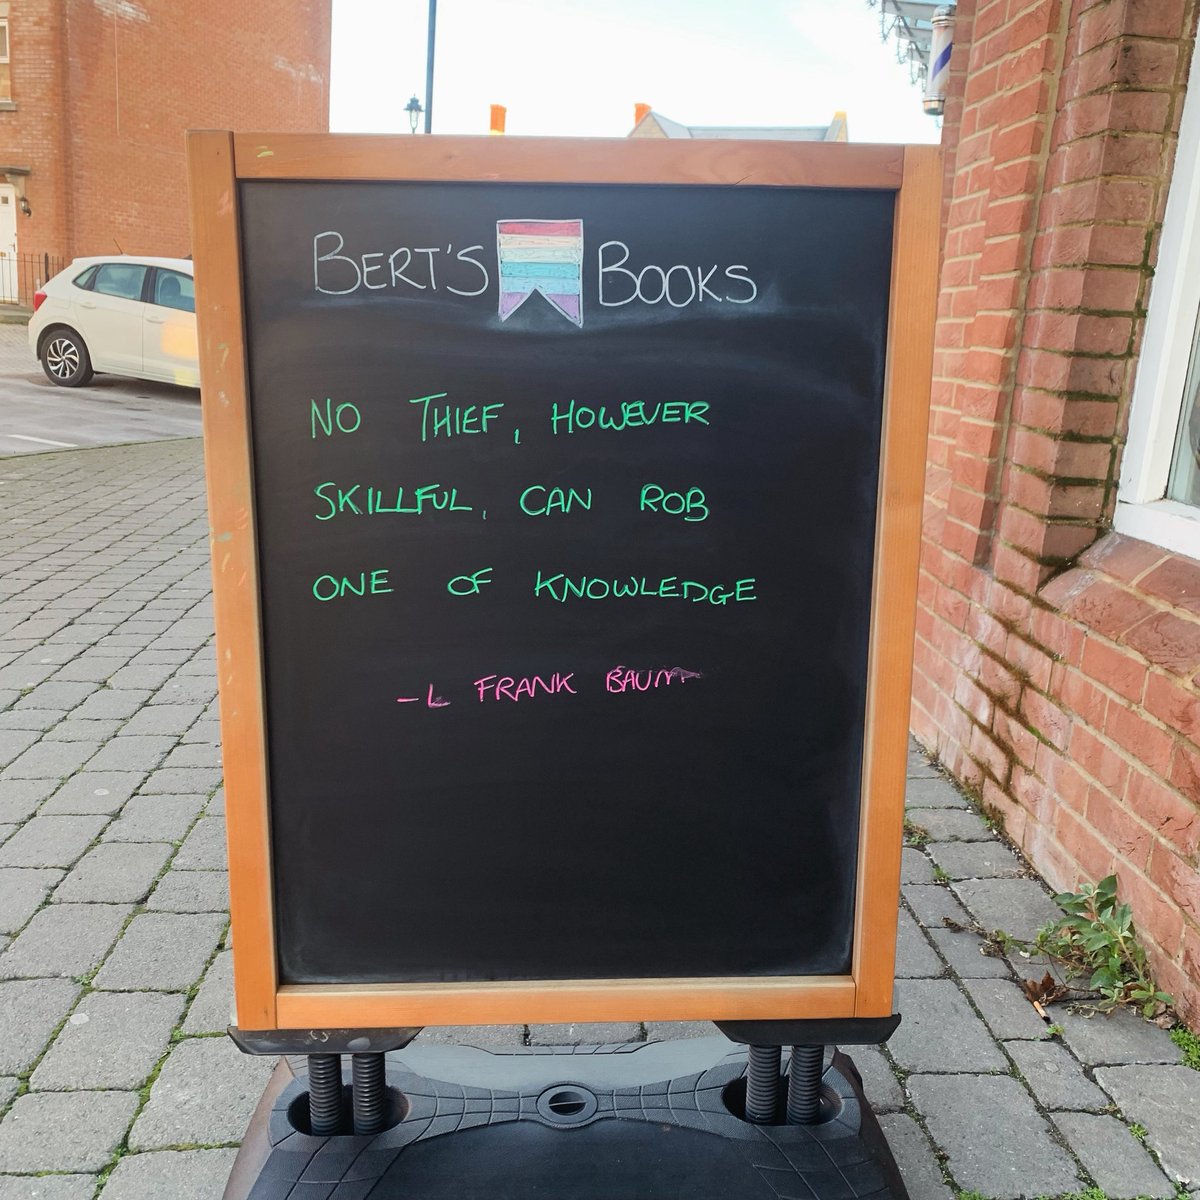 BERT'S BOOKS
NO THIEF, HOWEVER
SKILLFUL, CAN ROB
ONE OF KNOWLEDGE
-L FRANK BAUM